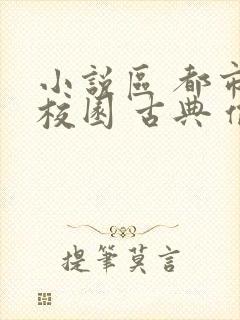 小說區 都市
校園 古典
提筆莫言